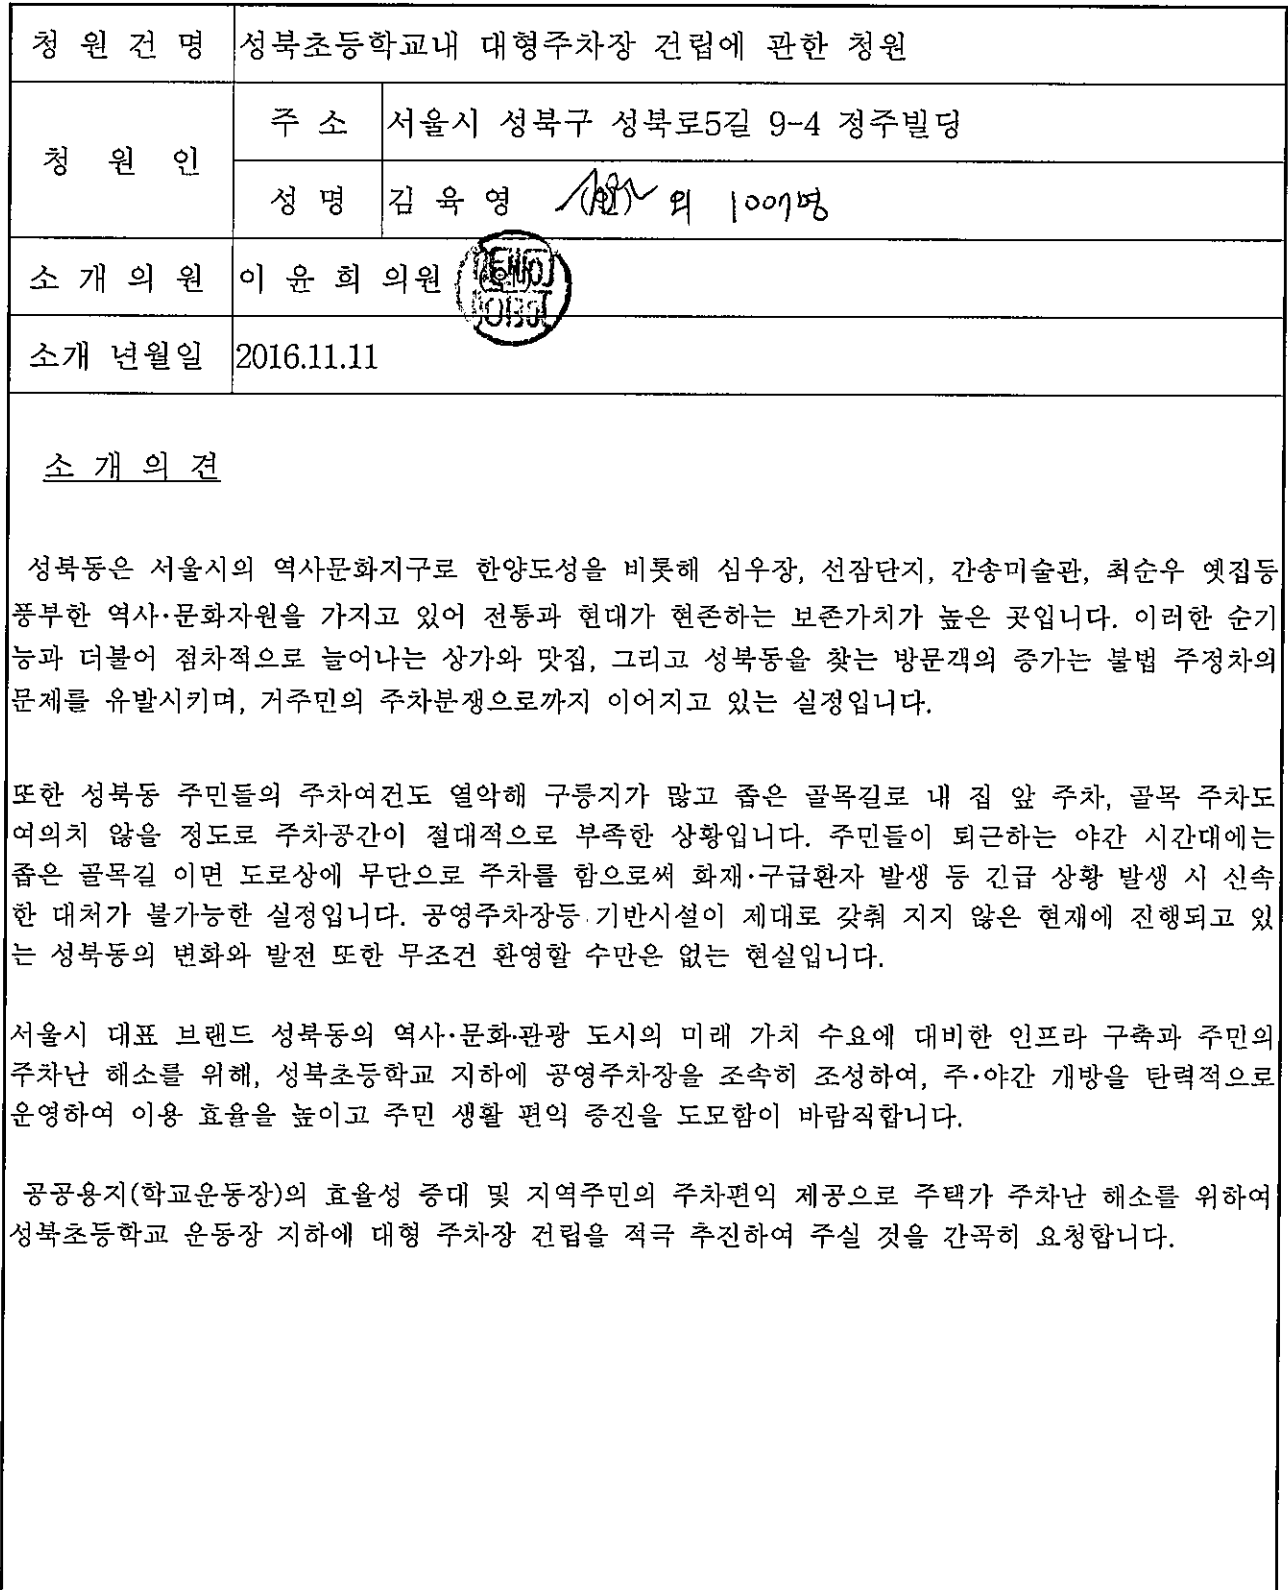 청 원 건 명 성북초등학교내 대형주차장 건립에 관한 청원
청 원 인
주 소 서울시 성북구 성북로5길 9-4 정주빌딩
성 명 김 육 영 (인) 외 1007명
소 개 의 원 이 윤 희 의원
소개 년월일 2016.11.11
소 개 의 견
성북동은 서울시의 역사문화지구로 한양도성을 비롯해 심우장, 선잠단지, 간송미술관, 최순우 옛집등
풍부한 역사·문화자원을 가지고 있어 전통과 현대가 현존하는 보존가치가 높은 곳입니다. 이러한 순기
능과 더불어 점차적으로 늘어나는 상가와 맛집, 그리고 성북동을 찾는 방문객의 증가는 불법 주정차의
문제를 유발시키며, 거주민의 주차분쟁으로까지 이어지고 있는 실정입니다.
또한 성북동 주민들의 주차여건도 열악해 구릉지가 많고 좁은 골목길로 내 집 앞 주차, 골목 주차도
여의치 않을 정도로 주차공간이 절대적으로 부족한 상황입니다. 주민들이 퇴근하는 야간 시간대에는
좁은 골목길 이면 도로상에 무단으로 주차를 함으로써 화재·구급환자 발생 등 긴급 상황 발생 시 신속
한 대처가 불가능한 실정입니다. 공영주차장등 기반시설이 제대로 갖춰 지지 않은 현재에 진행되고 있
는 성북동의 변화와 발전 또한 무조건 환영할 수만은 없는 현실입니다.
서울시 대표 브랜드 성북동의 역사·문화·관광 도시의 미래 가치 수요에 대비한 인프라 구축과 주민의
주차난 해소를 위해, 성북초등학교 지하에 공영주차장을 조속히 조성하여, 주·야간 개방을 탄력적으로
운영하여 이용 효율을 높이고 주민 생활 편익 증진을 도모함이 바람직합니다.
공공용지(학교운동장)의 효율성 증대 및 지역주민의 주차편익 제공으로 주택가 주차난 해소를 위하여
성북초등학교 운동장 지하에 대형 주차장 건립을 적극 추진하여 주실 것을 간곡히 요청합니다.